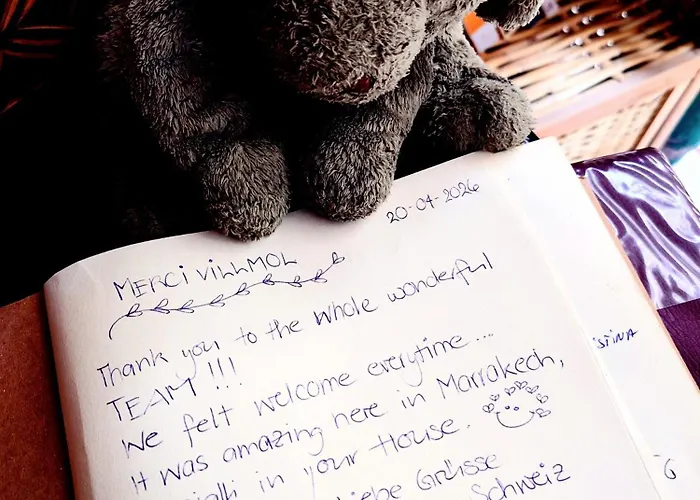 20-04-2026
MERCI VILLMOL
Thank you to the whole wonderful
TEAM !!!
We felt welcome everytime...
It was amazing here in Marrakech,
in your House.
Liebe Grüsse
Schweiz